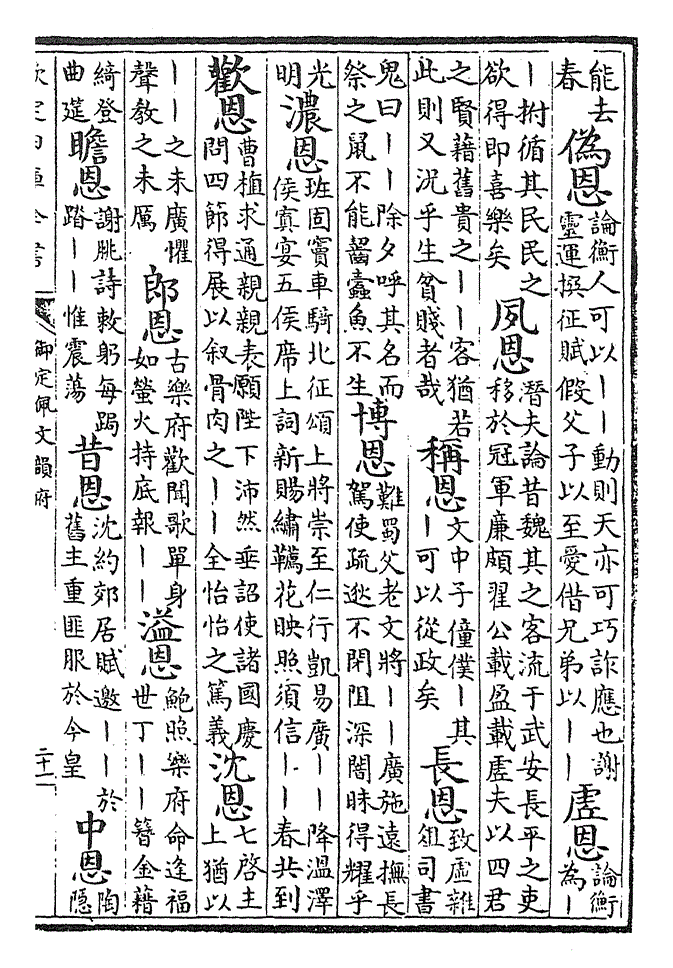 能去春偽恩論衡人可以丨丨動則天亦可巧詐應也謝靈運撰征賦假父子以至愛借兄弟以丨丨虛恩論衡為丨
丨拊循其民民之欲得即喜樂矣夙恩潛夫論昔魏其之客流于武安長平之吏移於冠軍廉頗翟公載盈載虛夫以四君
之賢藉舊貴之丨丨客猶若此則又況乎生貧賤者哉稱恩文中子僮僕丨其丨可以從政矣長恩致虛雜俎司書
鬼曰丨丨除夕呼其名而祭之鼠不能齧蠹魚不生博恩難蜀父老文將丨丨廣施遠撫長駕使疏逖不閉阻深闇昧得耀乎
光明濃恩班固竇車騎北征頌上將崇至仁行凱易廣丨丨降溫澤侯寘宴五侯席上詞新賜繡韉花映照須信丨丨春共到
歡恩曹植求通親親表願陛下沛然垂詔使諸國慶問四節得展以叙骨肉之丨丨全怡怡之篤義沈恩七啓主上猶以
丨丨之未廣懼聲教之未厲郎恩古樂府歡聞歌單身如螢火持底報丨丨溢恩鮑照樂府命逢福世丁丨丨簪金藉
綺登曲筵瞻恩謝朓詩敕躬每跼踏丨丨惟震蕩昔恩沈約郊居賦邀丨丨於舊主重匪服於今皇中恩陶隱
欽定四庫全書 御定佩文韻府 二十一